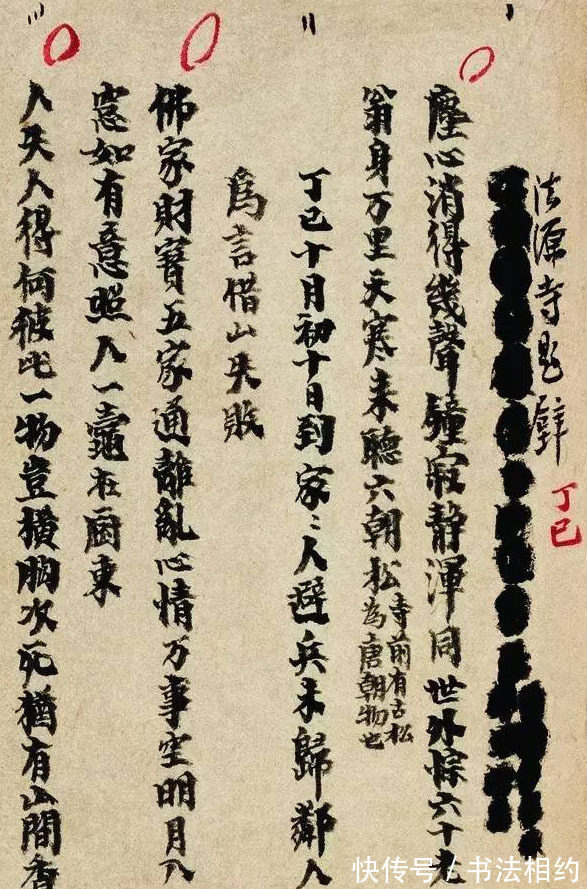 法源寺題壁
丁巳
塵心消得幾聲鐘寂靜渾同世外悰六十
翁身万里天寒来聽六朝松
寺前有古松
為唐朝物也
丁巳十月初十日到家〻人避兵未歸鄰人
爲言借山失敗
佛家財寶五家通離亂心情万事空明月入
窓如有意照人一在廚東
人失人得何彼此一物豈橫胸次死猶有山間香
快传号/书法相约